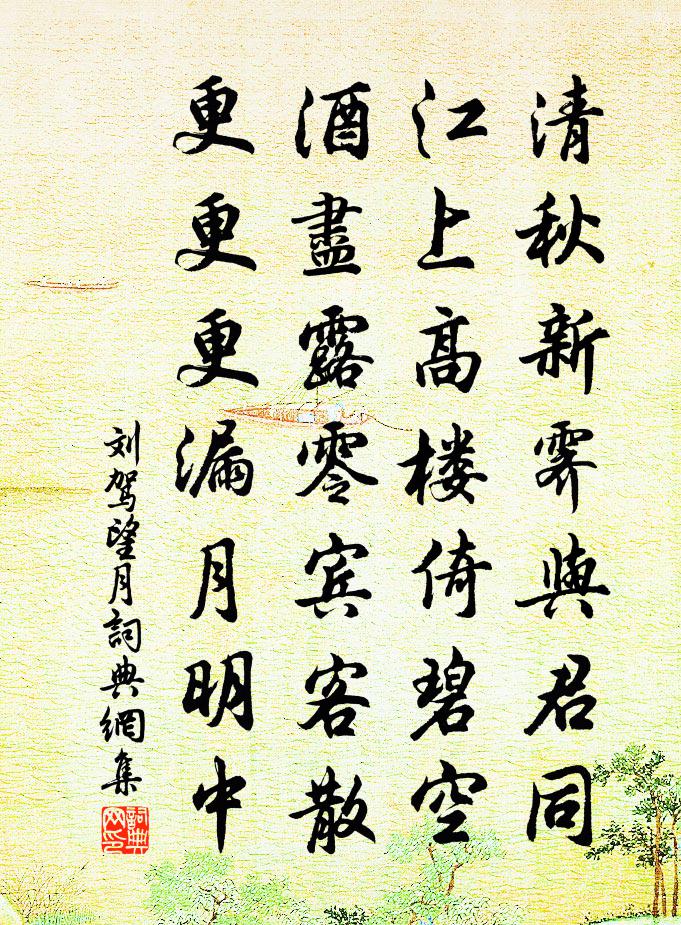 清秋新霁與君同
江上高楼倚碧空
酒盡露零宾客散
更更更漏月明中
刘驾望月詞典網集
詞典网印